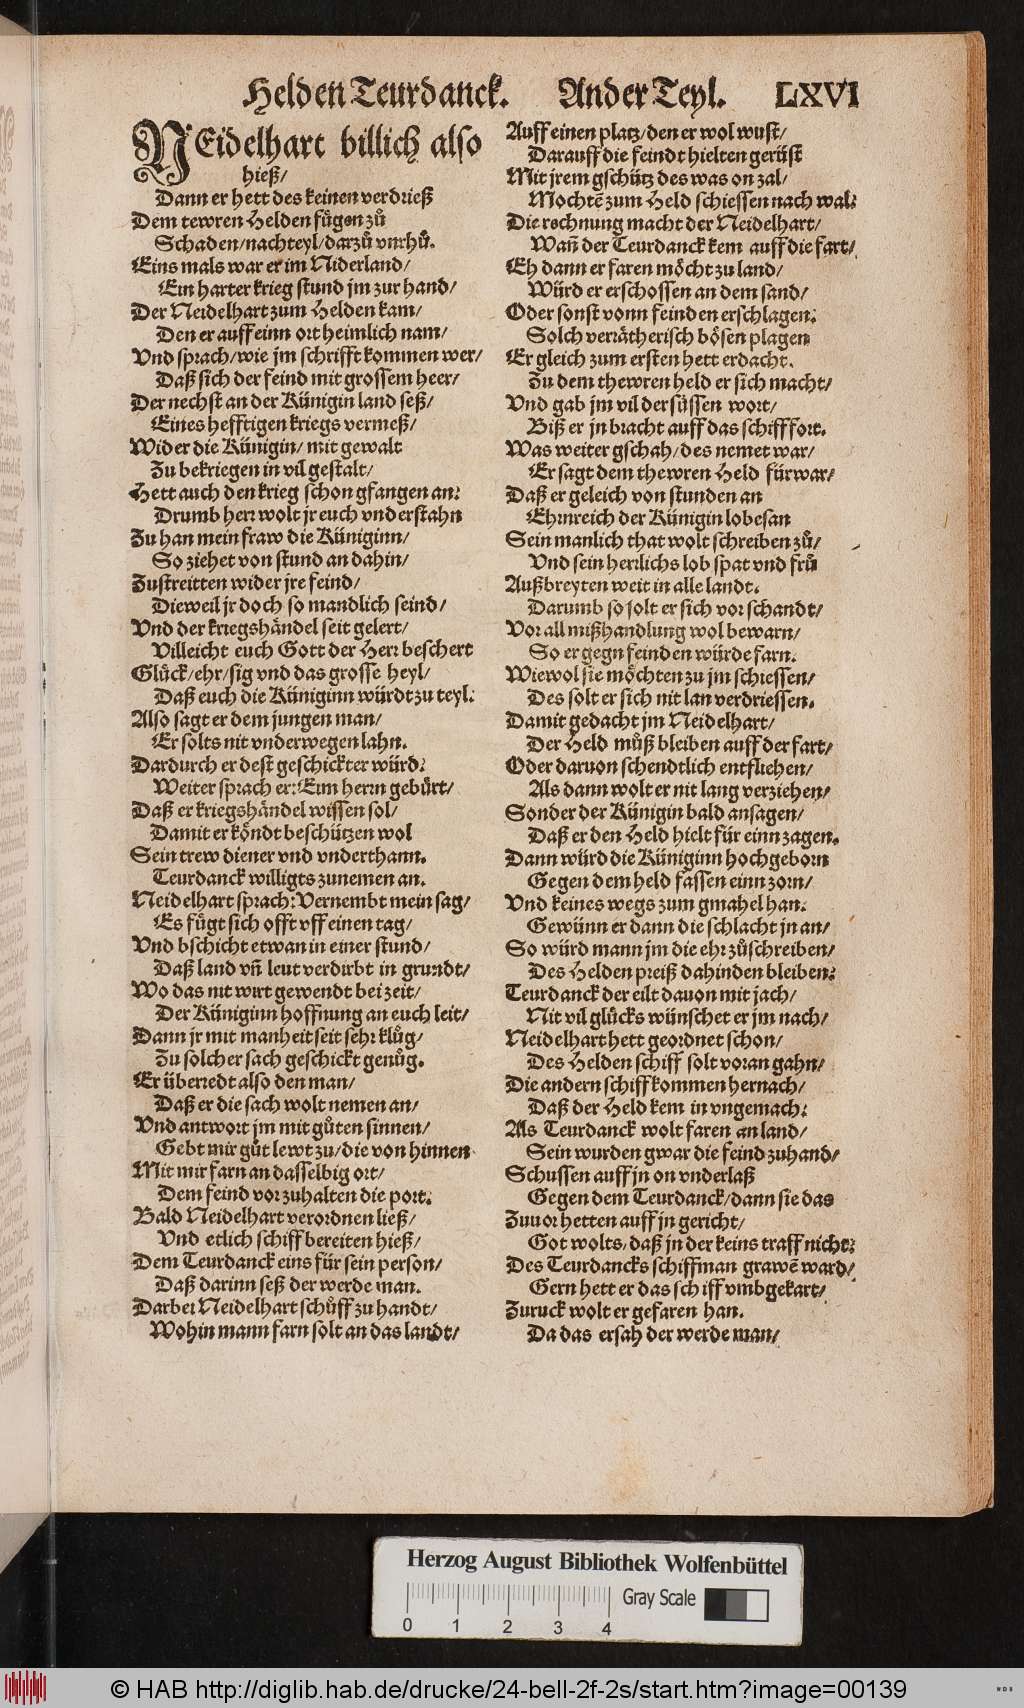 Helden Teurdanck. Ander Teyl. LXVI
NEidelhart billich also
hieß/
Dann er hett des keinen verdrieß
Dem tewren Helden fůgen zů
Schaden/nachteyl/darzů vnrhů.
Eins mals war er im Niderland/
Ein harter krieg stund jm zur hand/
Der Neidelhart zum Helden kam/
Den er auff einn ort heimlich nam/
Vnd sprach/wie jm schrifft kommen wer/
Daß sich der feind mit grossem heer/
Der nechst an der Künigin land seß/
Eines hefftigen kriegs vermeß/
Wider die Künigin/mit gewalt
Zu bekriegen in vil gestalt/
Hett auch den krieg schon gfangen an:
Drumb herr wolt jr euch vnderstahn
Zu han mein fraw die Küniginn/
So ziehet von stund an dahin/
Zustreitten wider jre feind/
Dieweil jr doch so mandlich seind/
Vnd der kriegshändel seit gelert/
Villeicht euch Gott der Herr beschert
Glück/ehr/sig vnd das grosse heyl/
Daß euch die Küniginn würdt zu teyl:
Also sagt er dem jungen man/
Er solts nit vnderwegen lahn.
Dardurch er dest geschickter würd:
Weiter sprach er: Eim herrn gebürt/
Daß er kriegshändel wissen sol/
Damit er köndt beschützen wol
Sein trew diener vnd vnderthann.
Teurdanck willigts zunemen an.
Neidelhart sprach: Vernembt mein sag/
Es fůgt sich offt vff einen tag/
Vnd bschicht etwan in einer stund/
Daß land vñ leut verdirbt in grundt/
Wo das nit wirt gewendt bei zeit/
Der Küniginn hoffnung an euch leit/
Dann jr mit manheit seit sehr klůg/
Zu solcher sach geschickt genůg.
Er überredt also den man/
Daß er die sach wolt nemen an/
Vnd antwort jm mit gůten sinnen/
Gebt mir gůt lewt zu/die von hinnen
Mit mir farn an dasselbig ort/
Dem feind vorzuhalten die port.
Bald Neidelhart verordnen ließ/
Vnd etlich schiff bereiten hieß/
Dem Teurdanck eins für sein person/
Daß darinn seß der werde man.
Darbei Neidelhart schůff zu handt/
Wohin mann farn solt an das landt/
Auff einen platz/den er wol wust/
Darauff die feindt hielten gerüst
Mit jrem gschütz des was on zal/
Mochtẽ zum Held schiessen nach wal:
Die rechnung macht der Neidelhart/
Wañ der Teurdanck kem auff die fart/
Eh dann er faren möcht zu land/
Würd er erschossen an dem sand/
Oder sonst vonn feinden erschlagen:
Solch verätherisch bösen plagen
Er gleich zum ersten hett erdacht.
Zu dem thewren held er sich macht/
Vnd gab jm vil der süssen wort/
Biß er jn bracht auff das schiffort.
Was weiter gschah/des nemet war/
Er sagt dem thewren Held fürwar/
Daß er geleich von stunden an
Ehrnreich der Künigin lobesan
Sein manlich that wolt schreiben zů/
Vnd sein herrlichs lob spat vnd frů
Außbreyten weit in alle landt.
Darumb so solt er sich vor schandt/
Vor all mißhandlung wol bewarn/
So er gegn feinden würde farn.
Wiewol sie möchten zu jm schiessen/
Des solt er sich nit lan verdriessen.
Damit gedacht jm Neidelhart/
Der Held můß bleiben auff der fart/
Oder daruon schendtlich entfliehen/
Als dann wolt er nit lang verziehen/
Sonder der Künigin bald ansagen/
Daß er den Held hielt für einn zagen.
Dann würd die Küniginn hochgeborn
Gegen dem held fassen einn zorn/
Vnd keines wegs zum gmahel han.
Gewünn er dann die schlacht jn an/
So würd mann jm die ehr zůschreiben/
Des Helden preiß dahinden bleiben:
Teurdanck der eilt dauon mit jach/
Nit vil glücks wünschet er jm nach/
Neidelhart hett geordnet schon/
Des Helden schiff solt voran gahn/
Die andern schiff kommen hernach/
Daß der Held kem in vngemach:
Als Teurdanck wolt faren an land/
Sein wurden gwar die feind zuhand/
Schussen auff jn on vnderlaß
Gegen dem Teurdanck/dann sie das
Zuuor hetten auff jn gericht/
Got wolts/daß jn der keins traff nicht:
Des Teurdancks schiffman grawẽ ward/
Gern hett er das schiff vmbgekart/
Zuruck wolt er gefaren han.
Da das ersah der werde man/
Herzog August Bibliothek Wolfenbüttel
Gray Scale
0 1 2 3 4
© HAB http://diglib.hab.de/drucke/24-bell-2f-2s/start.htm?image=00139